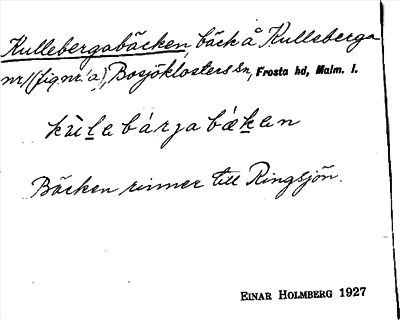 Kullebergabäcken, bäck å Kulleberga
nr 1 (fig nr 1 a), Bosjöklosters sn, Frosta hd, Malm. l.
kùlebárjabækan
Bäcken rinner till Ringsjön.
EINAR HOLMBERG 1927